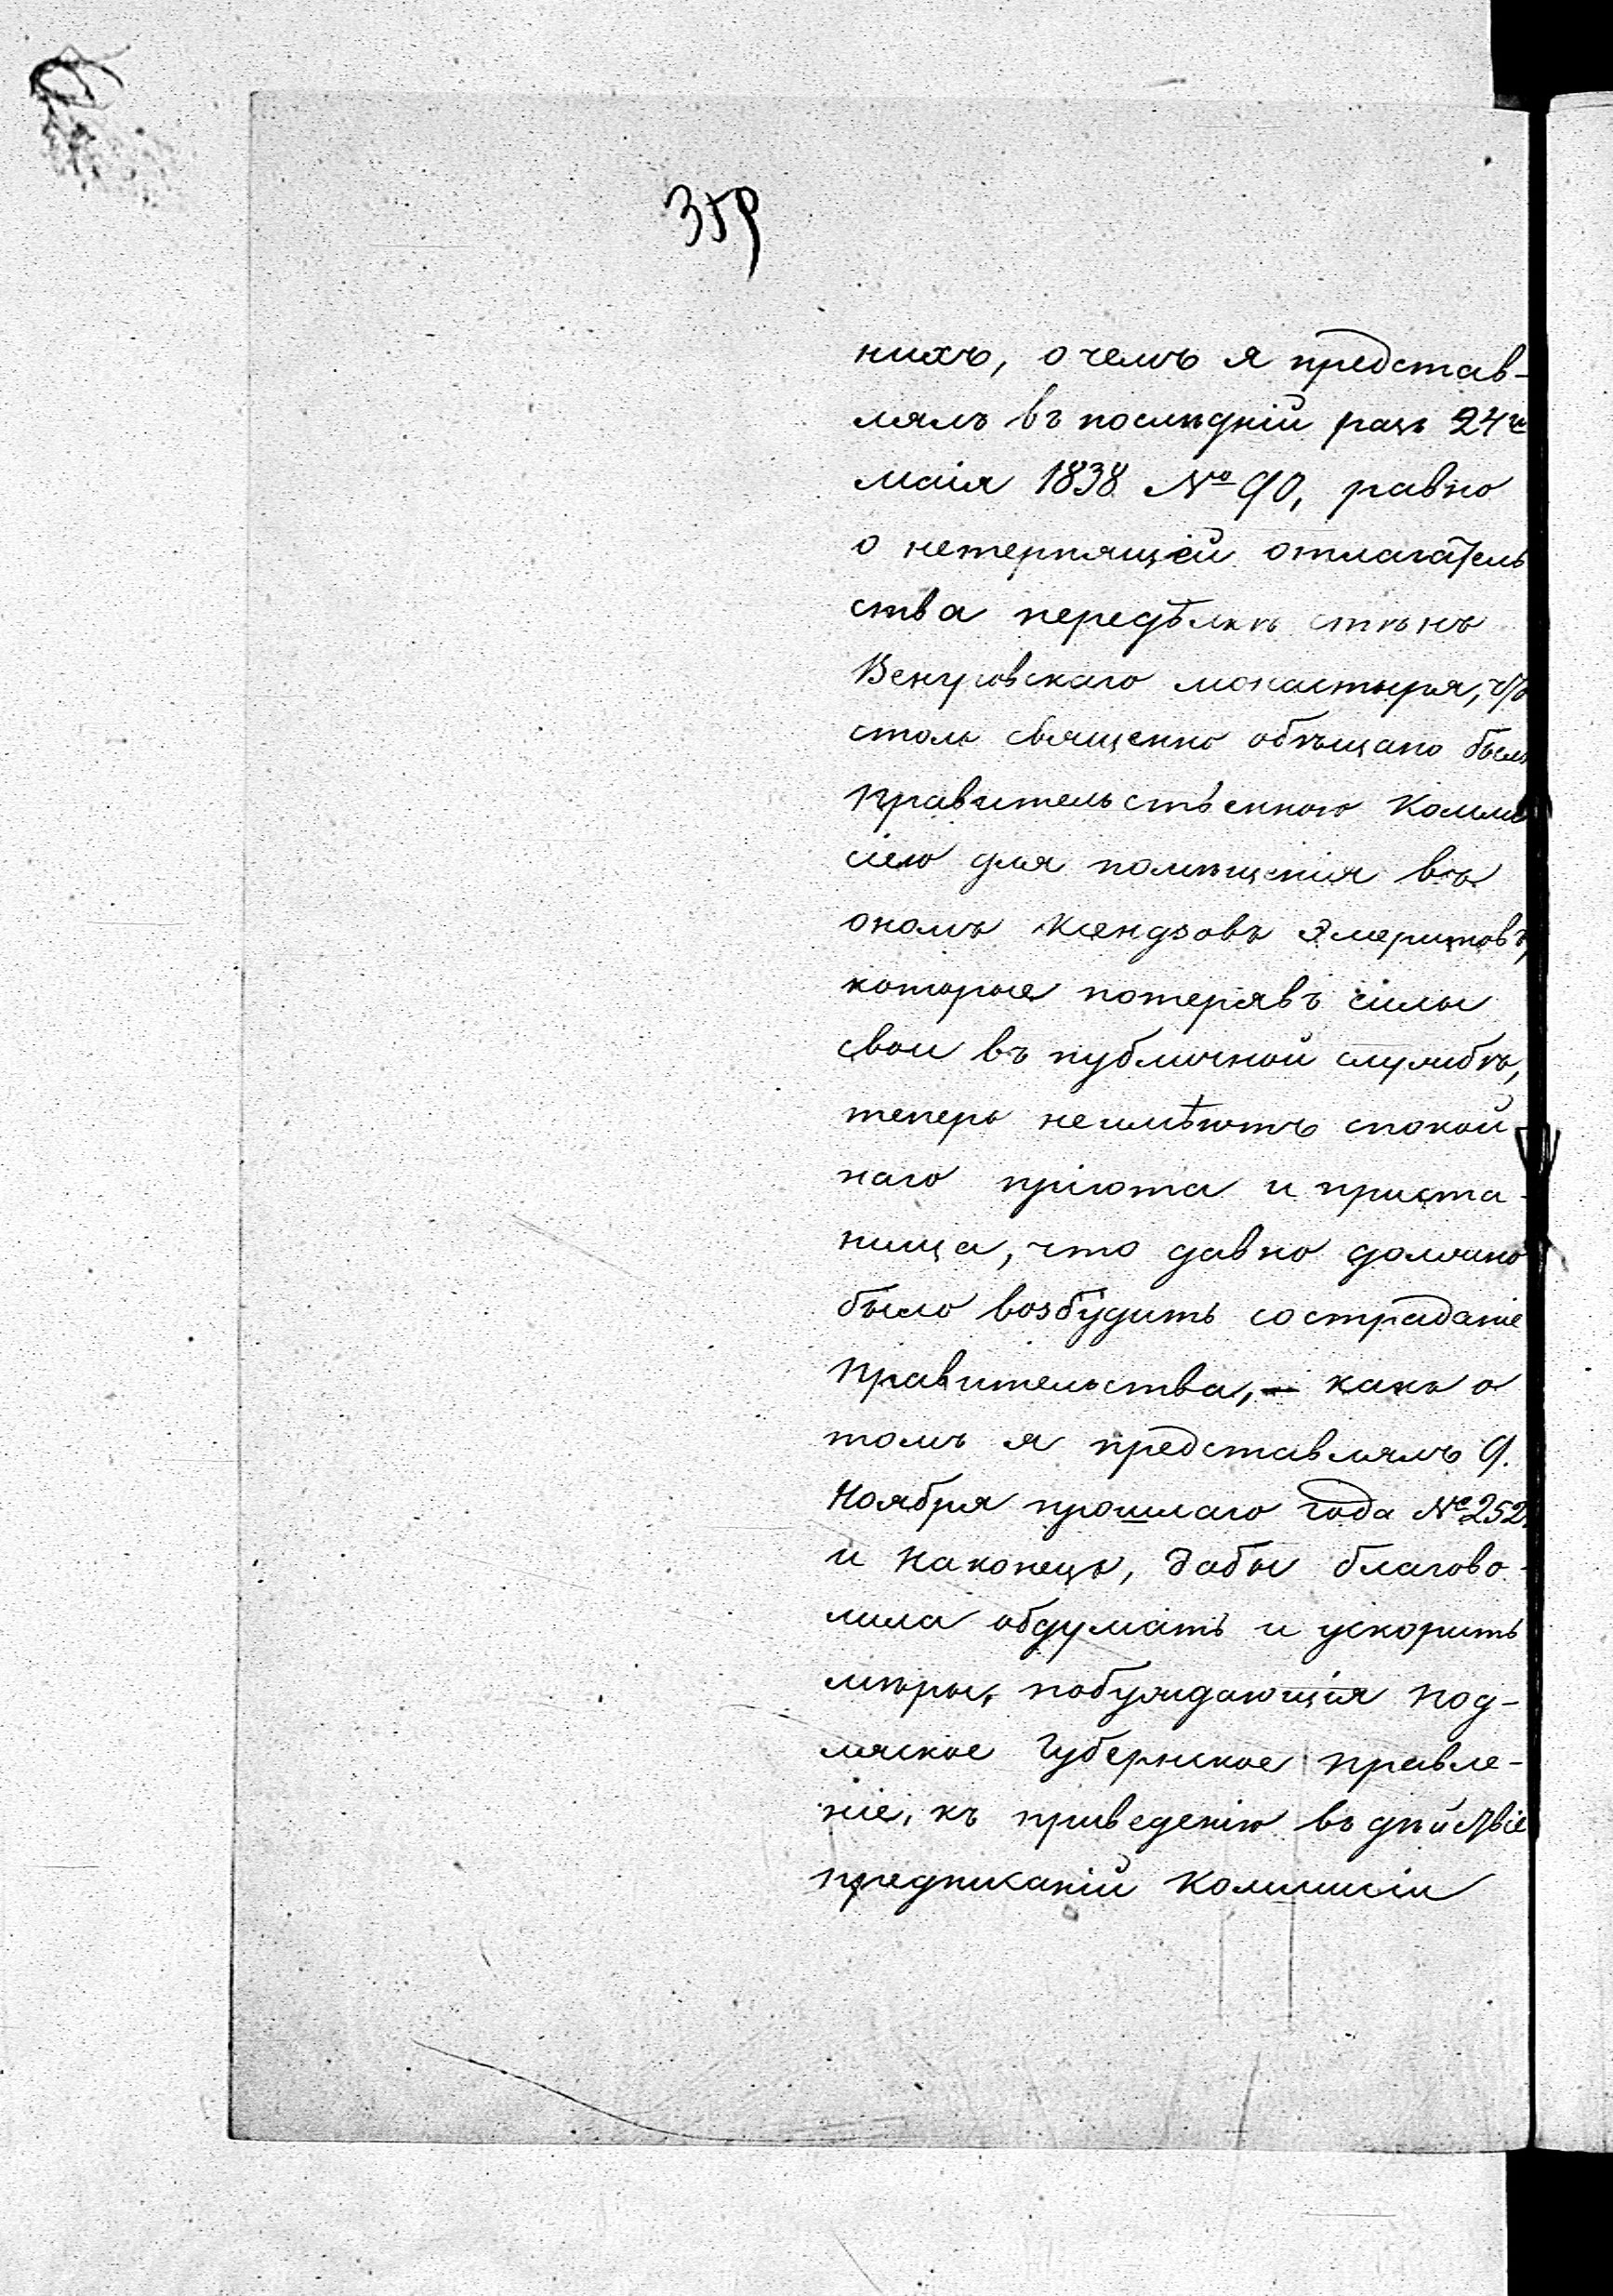 359
нихъ, о чемъ я представ-
лялъ въ послѣдній разъ 24го
маія 1838 № 90, равно
о нетерпящей отлагатель
ства передѣлкѣ стѣнъ
Венгровскаго монастыря, что
столь священно обѣщано было
правительственною Комми
сіею для помѣщенія въ
ономъ Ксендзовъ Эмеритовъ,
которые потерявъ силы
свои въ публичной службѣ,
теперь неимѣютъ спокой-
наго пріюта и приста-
нища, что давно должно
было возбудить состраданіе
правительства, – какъ о
томъ я представлялъ 9.
Ноября прошлаго года № 252.
и наконецъ, дабы благово-
лила обдумать и ускорить
мѣры, побуждающія Под-
ляское Губернское правле-
ніе, къ приведенію въ дѣйствіе
предписаній Коммисіи